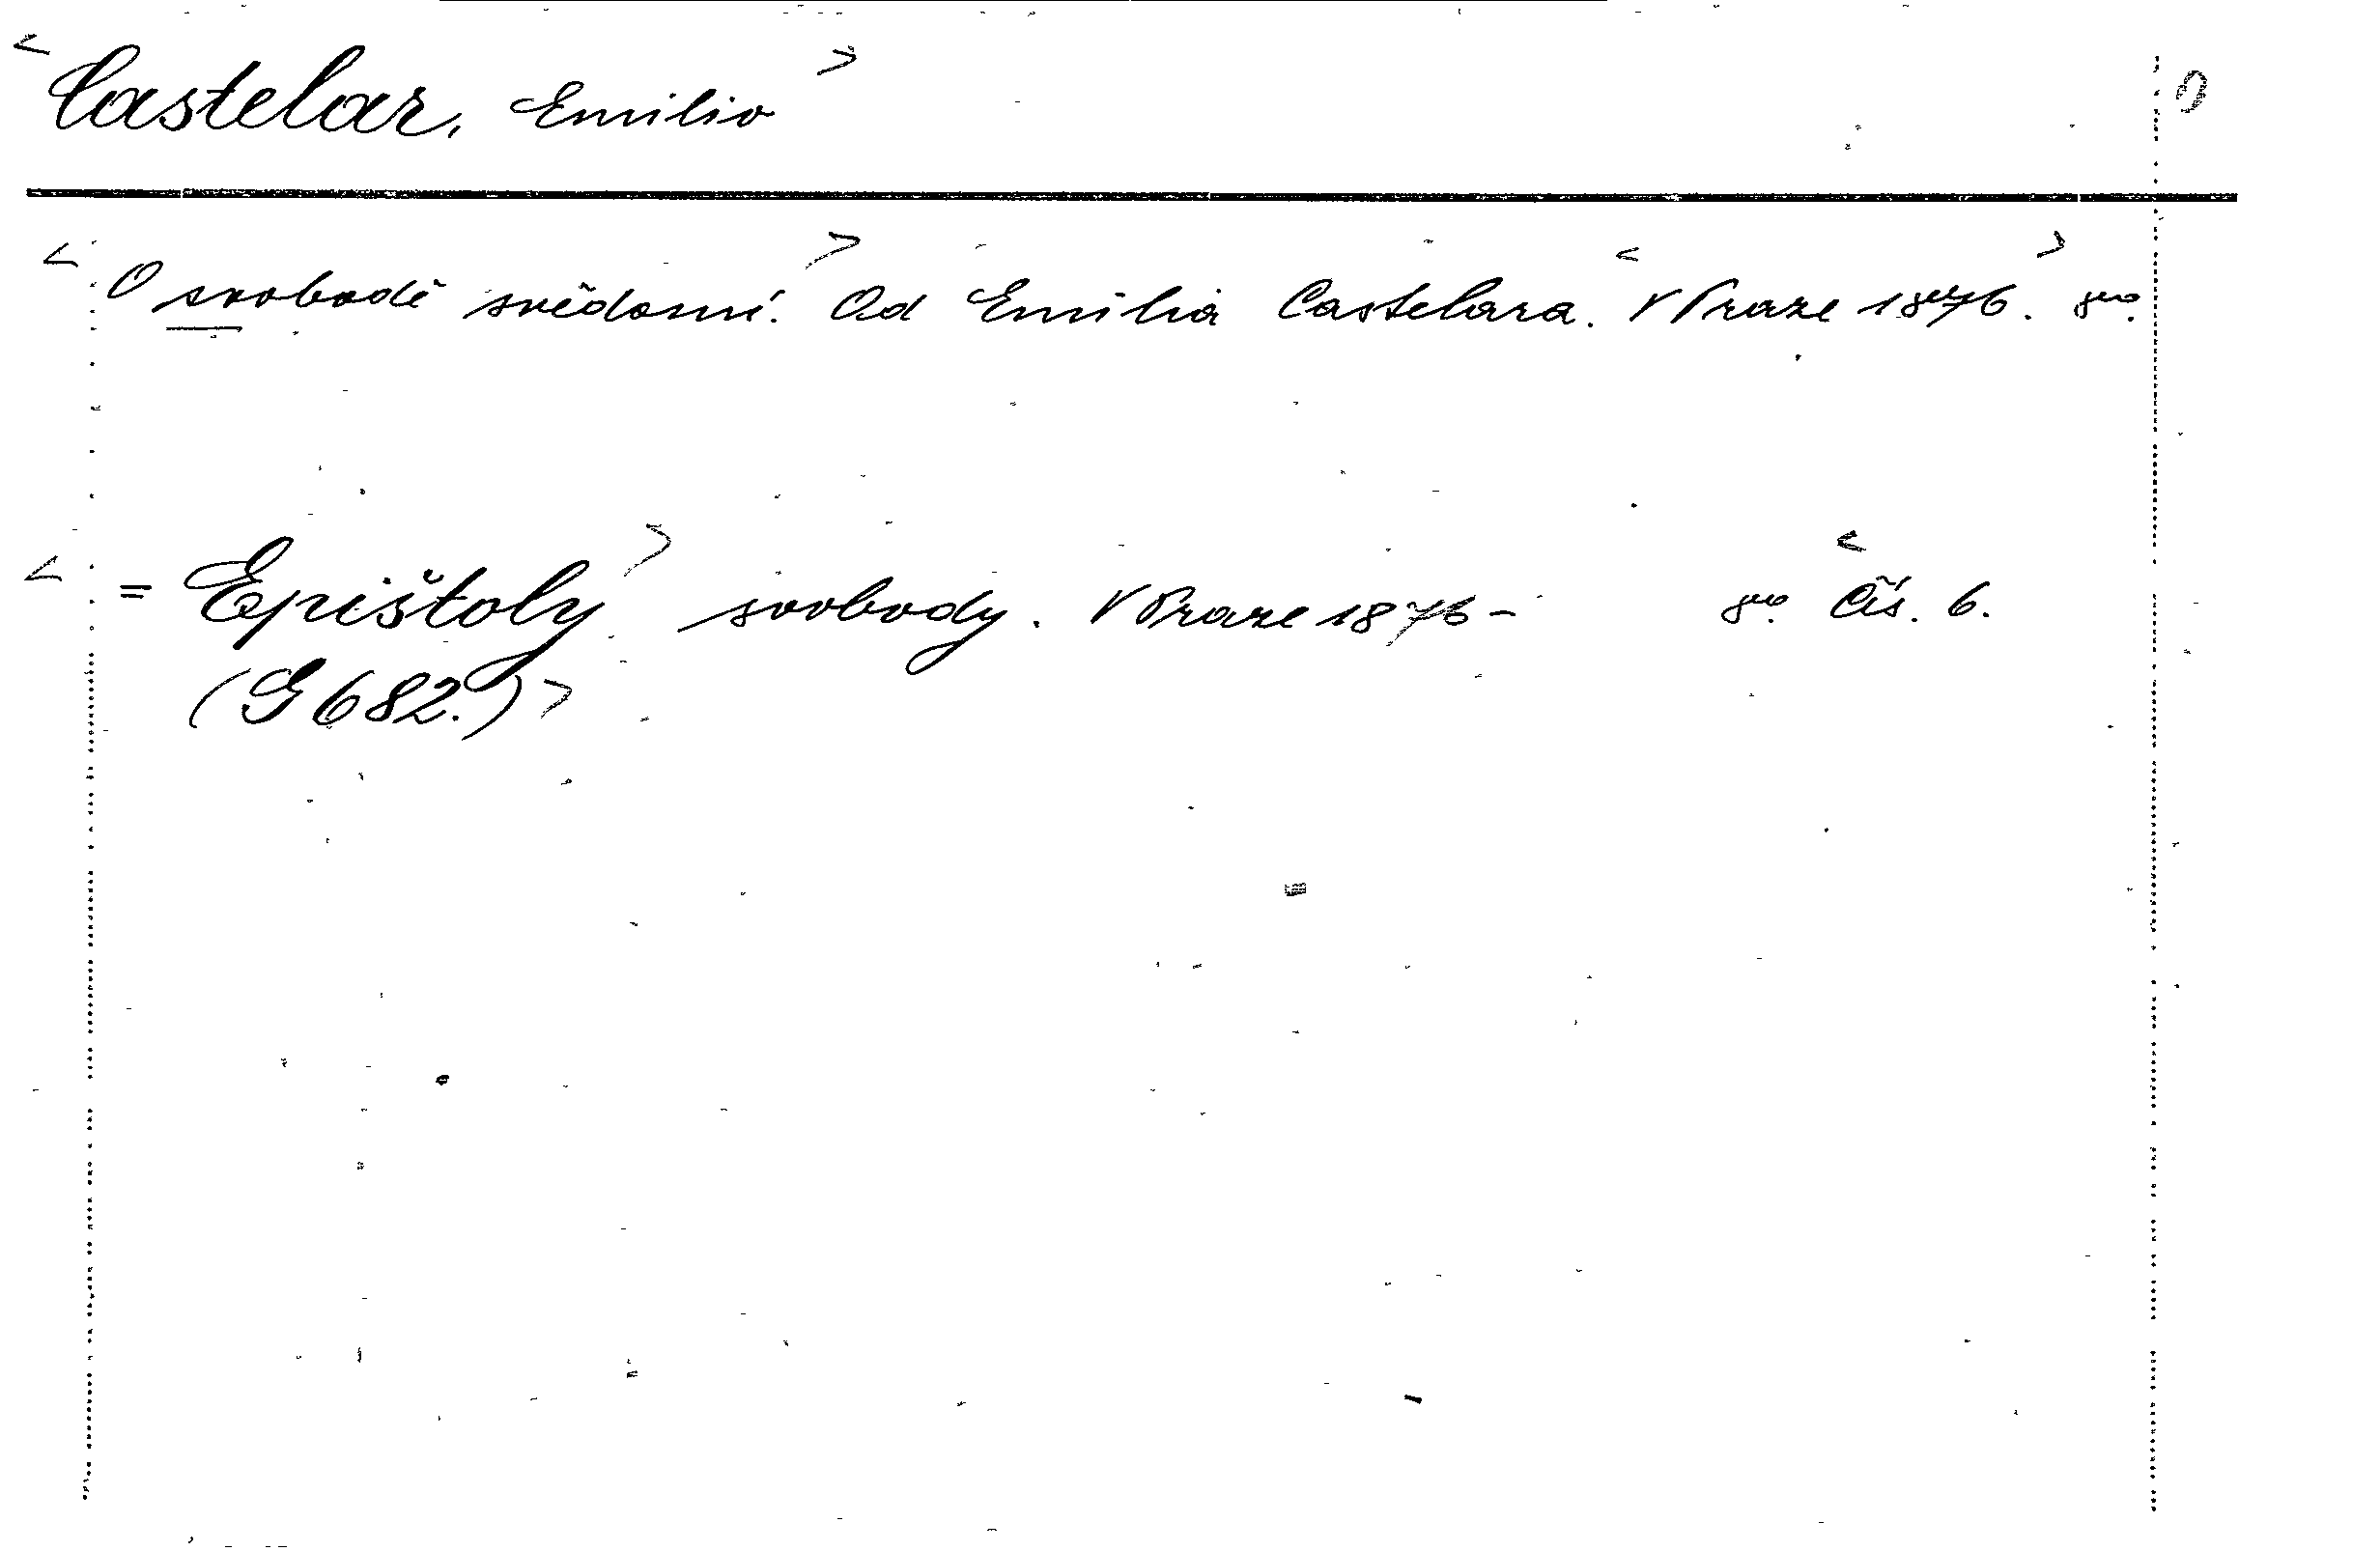 <Castelar, Emilio>
<O svobodě svědomí.> Od Emilia Castelara. <V Praze 1876.> 8vo.
<= Epištoly> svobody. V Praze 1876- 8vo. <Čís. 6.
(G 682.)>